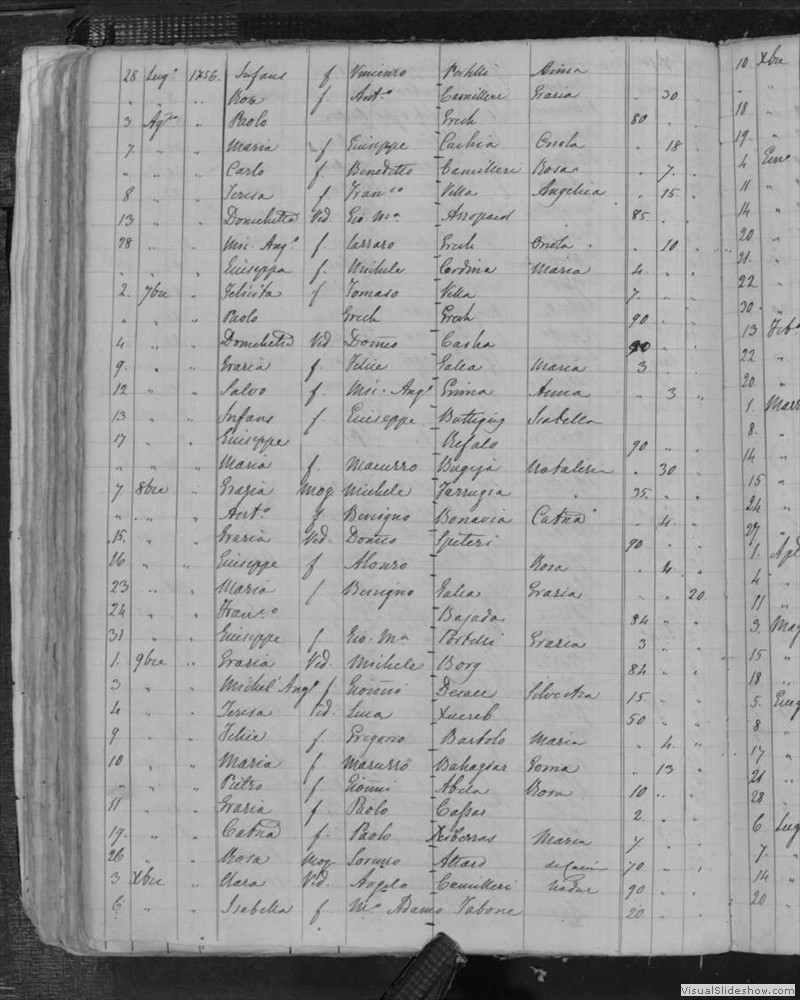 28 Lug.o 1856. Infans f Vincenzo Portelli Anna
" " " Rosa f. Ant.o Camilleri Grazia " 30 "
3 Ag.to " Paolo Grech 80 " "
7 " " Maria f Giuseppe Cachia Orsola " 18 "
" " " Carlo f Benedetto Camilleri Rosa " 7. "
8 " " Teresa f Fran.co Villa Angelica " 15 "
13 " " Vid. Gio. M.a Azzopard 85. " "
28 " " Mic. Ang.o f. Grech Orsola " 10 "
" " " Giuseppa f. Michele Cordina Maria 4. " "
2. 7bre " Felicita f Tomaso Villa 7. " "
" " " Paolo Grech Grech 90 " "
4 " " Vid Casha 90 " "
9. " " Grazia f. Felice Galea Maria 3 " "
12 " " Salvo f. Mic. Ang.o Anna " 3 "
13 " " Infans f. Giuseppe Buttigieg Isabella
17 " " Giuseppe Refalo 90 " "
" " " Maria f. Bugeja " 30 "
7 8bre " Grazia Mog. Michele Farrugia 35. " "
" " " Ant.o f Benigno Bonavia Catna " 4 "
15. " " Grazia Vid. Spiteri 90 " "
16 " " Giuseppe f Alonzo Rosa " 4 "
23 " " Maria f Benigno Galea Grazia " " 20
24 " " Fran.co Bajada 84 " "
31 " " Giuseppe f Gio. M.a Portelli Grazia 3 " "
1. 9bre " Grazia Vid. Michele Borg 84 " "
3 " " Michel' Ang.o f Silvestra 15 " "
4 " " Teresa Vid. Luca Xuereb 50 " "
9 " " Felice f Gregorio Bartolo Maria " 4. "
10 " " Maria f Gioma " 13 "
" " " Pietro f Abela Rosa 10 " "
11 " " Grazia f Paolo Cassar 2. " "
19. " " Catna f. Paolo Xiberras Maria 7. " "
26 " " Rosa Mog. Attard 70 " "
3 Xbre " Clara Vid. Angelo Camilleri Nadur 90 " "
6 " " Isabella f M.o Adamo Tabone 20 " "
10 Xbre
"
18 "
19. "
4
11 "
14 "
20 "
21. "
22 "
30. "
13
22 "
20 "
1. Marz
8. "
14 "
15 "
24 "
27 "
1. Apl
4 "
11 "
3. Mag
15 "
18 "
5. Giug
8 "
17 "
21 "
28 "
6 Lug
7. "
14 "
20 "
VisualSlideshow.com